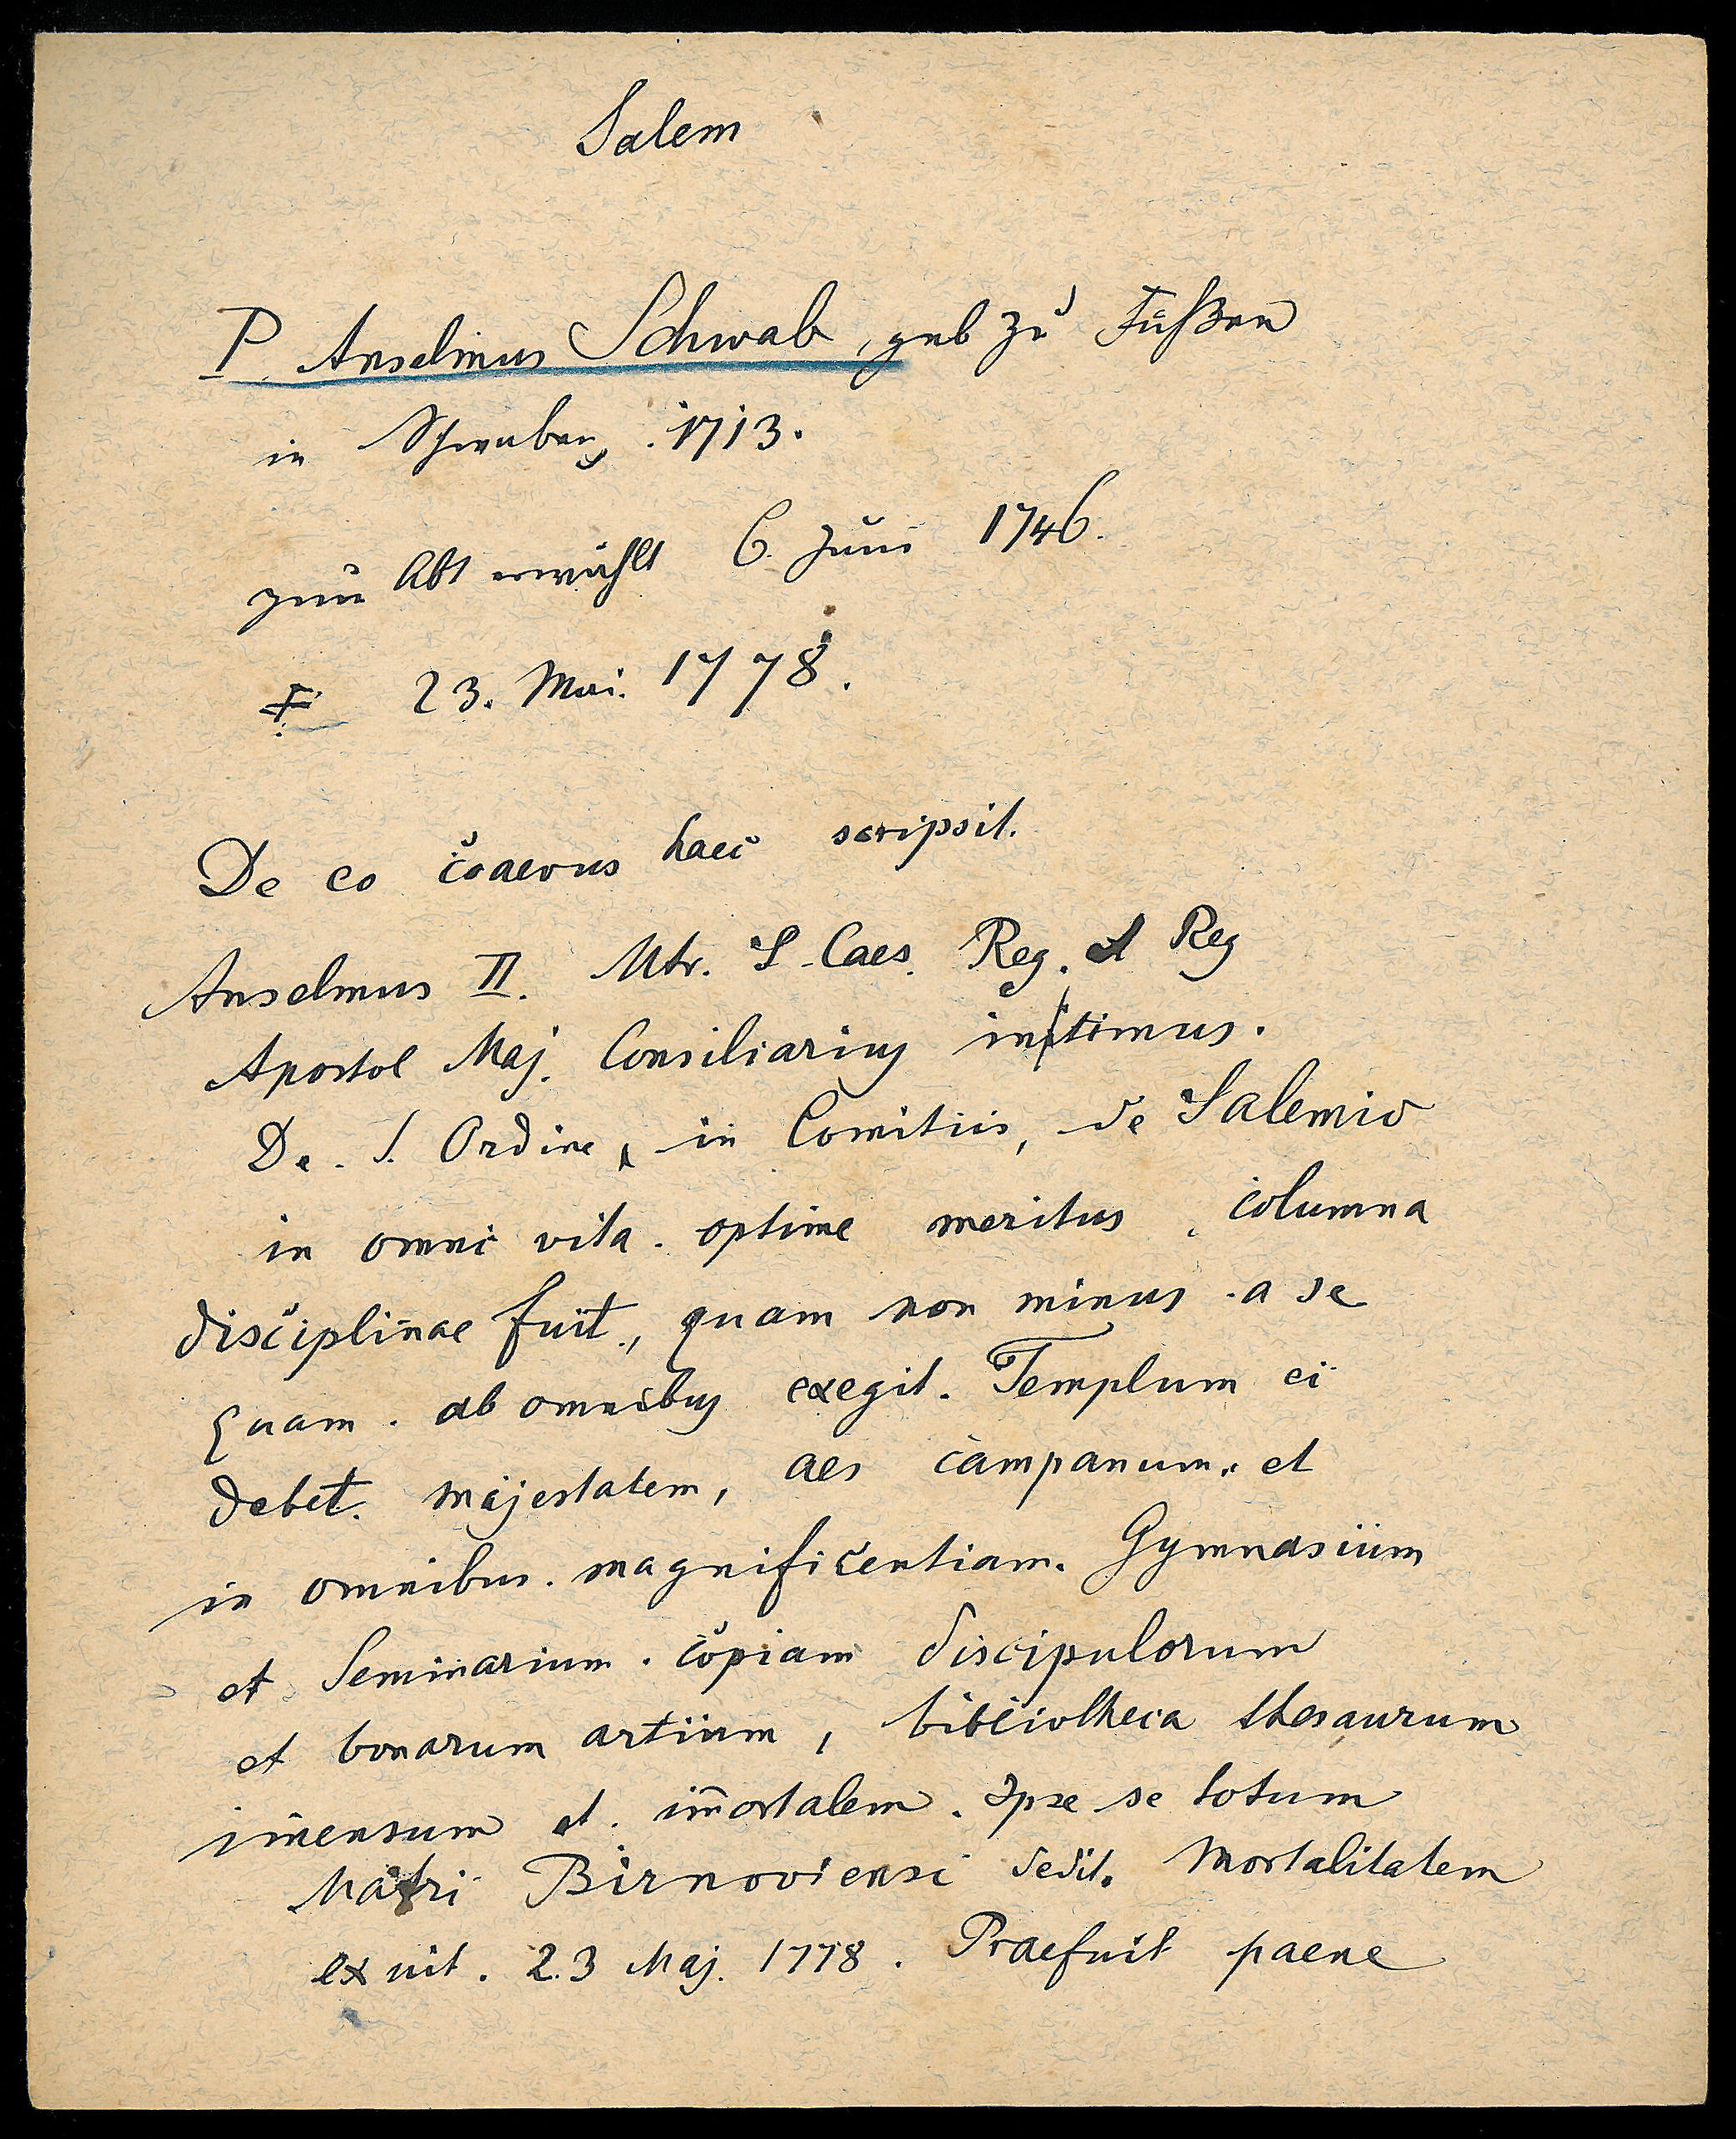 Salem
P. Anselmus Schwab, geb zu Füßen
in Schwaben, 1713.
zum Abt erwählt 6. Juni 1746.
† 23. Mai. 1778.
De eo coaevus haec scripsit.
Anselmus II. Utr. S. Caes. Reg. et Reg
Apostol Maj. Consiliarius intimus.
De. S. Ordine, in Comitiis, de Salemio
in omni vita. optime meritus, columna
disciplinae fuit., quam non minus. a se
quam. ab omnibus exegit. Templum ei
debet. majestatem, aes campanum. et
in omnibus. magnificentiam. Gymnasium
et Seminarium. copiam discipulorum
et bonarum artium, bibliotheca thesaurum
im̄ensum et. im̄ortalem. Ipse se totum
Matri Birnoviensi dedit. Mortalitatem
exuit. 23 Maj. 1778. Praefuit paene